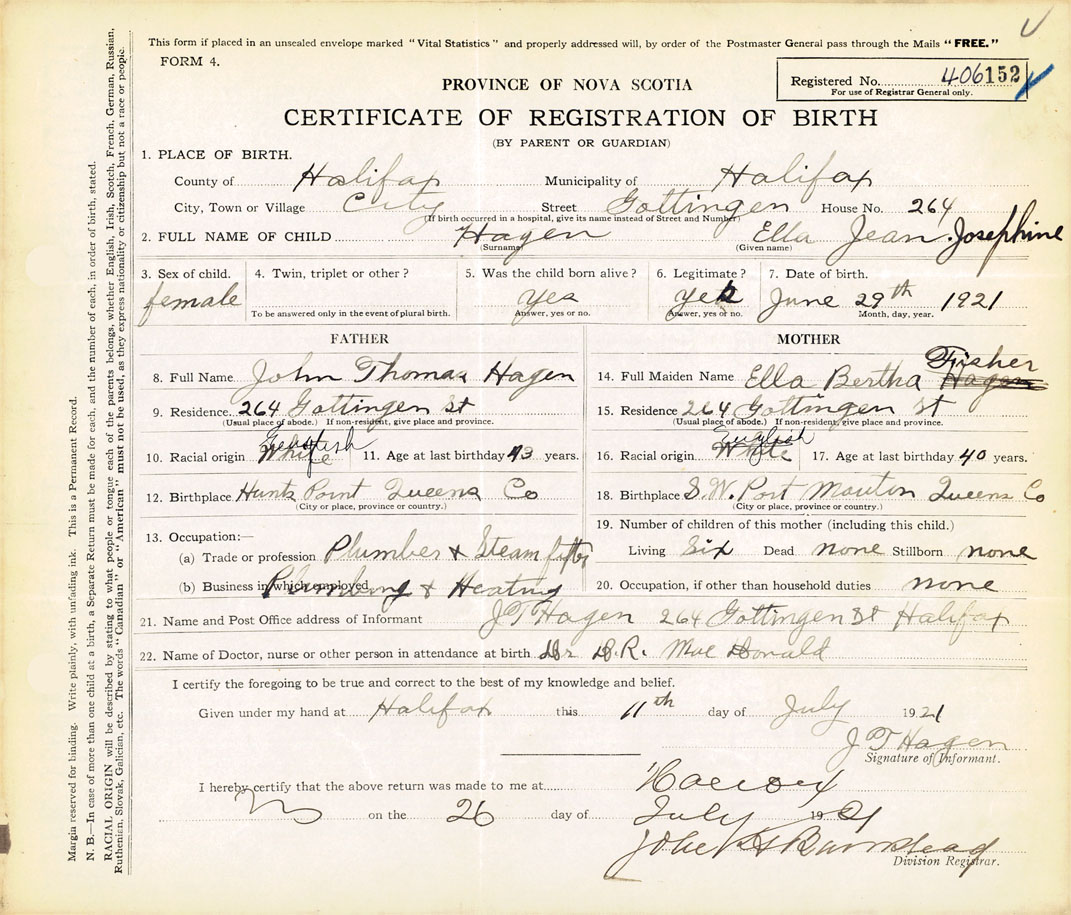 This form if placed in an unsealed envelope marked "Vital Statistics" and properly addressed will, by order of the Postmaster General pass through the Mails "FREE."
FORM 4.
Registered No. 406152
For use of Registrar General only.
PROVINCE OF NOVA SCOTIA
CERTIFICATE OF REGISTRATION OF BIRTH
(BY PARENT OR GUARDIAN)
1. PLACE OF BIRTH.
County of Halifax Municipality of Halifax
City, Town or Village City Street Gottingen House No. 264
(If birth occurred in a hospital, give its name instead of Street and Number)
2. FULL NAME OF CHILD Hagen Ella Jean Josephine
(Surname) (Given name)
3. Sex of child. 4. Twin, triplet or other? 5. Was the child born alive? 6. Legitimate? 7. Date of birth.
female yes yes June 29th 1921
To be answered only in the event of plural birth. Answer, yes or no. Answer, yes or no. Month, day, year.
FATHER
8. Full Name John Thomas Hagen
9. Residence 264 Gottingen St
(Usual place of abode.) If non-resident, give place and province.
10. Racial origin White 11. Age at last birthday 43 years.
12. Birthplace Hunts Point Queens Co
(City or place, province or country.)
13. Occupation:—
(a) Trade or profession Plumber & Steamfitter
(b) Business in which employed Plumbing & Heating
MOTHER
14. Full Maiden Name Ella Bertha Hagen Fisher
15. Residence 264 Gottingen St
(Usual place of abode.) If non-resident, give place and province.
16. Racial origin White English 17. Age at last birthday 40 years.
18. Birthplace S.W. Port Mouton Queens Co
(City or place, province or country.)
19. Number of children of this mother (including this child.)
Living Six Dead none Stillborn none
20. Occupation, if other than household duties none
21. Name and Post Office address of Informant J T Hagen 264 Gottingen St Halifax
22. Name of Doctor, nurse or other person in attendance at birth Dr D.R. Mac Donald
I certify the foregoing to be true and correct to the best of my knowledge and belief.
Given under my hand at Halifax this 11th day of July 1921
J T Hagen
Signature of Informant.
I hereby certify that the above return was made to me at
on the 26 day of July 1921
Division Registrar.
Margia reserved for binding. Write plainly, with unfading ink. This is a Permanent Record.
N. B.—In case of more than one child at a birth, a Separate Return must be made for each, and the number of each, in order of birth, stated.
RACIAL ORIGIN will be described by stating to what people or tongue each of the parents belongs, whether English, Irish, Scotch, French, German, Russian,
Ruthenian, Slovak, Galician, etc. The words "Canadian" or "American" must not be used, as they express nationality or citizenship but not a race or people.